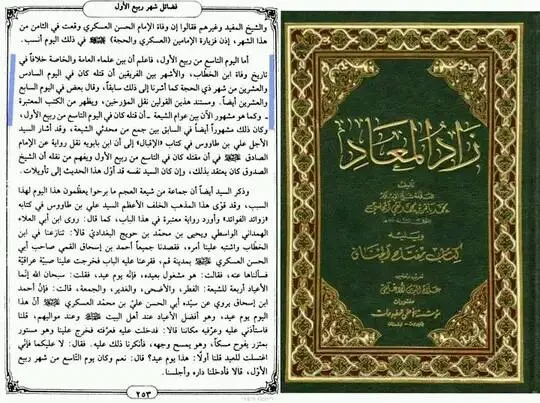 فضائل شهر ربيع الأول
والشيخ المفيد وغيرهم فقالوا إن وفاة الإمام الحسن العسكري وقعت في الثامن من
هذا الشهر، إذن فزيارة الإمامين (العسكري والحجة) في ذلك اليوم أنسب.
أما اليوم التاسع من ربيع الأول، فاعلم أن بين علماء العامة والخاصة خلافاً في
تاريخ وفاة ابن الخطّاب، والأشهر بين الفريقين أن قتله كان في اليوم السادس
والعشرين من شهر ذي الحجة كما أشرنا إلى ذلك سابقاً، وقال بعض في اليوم السابع
والعشرين أيضاً. ومستند هذين القولين نقل المؤرخين، ويظهر من الكتب المعتبرة
ـ وكما هو مشهور الآن بين عوام الشيعة ـ أن قتله كان في اليوم التاسع من ربيع الأول،
وكان ذلك مشهوراً أيضاً في السابق بين جمع من محدثي الشيعة، وقد أشار السيد
الأجل علي بن طاووس في كتاب «الإقبال» إلى أن ابن بابويه نقل رواية عن الإمام
الصادق في أن مقتله كان في التاسع من ربيع الأول ويفهم من نقله أن الشيخ
الصدوق كان يعتقد بذلك، وإن كان السيد نفسه قد أوّل هذا الحديث إلى تأويلات.
وذكر السيد أيضاً أن جماعة من شيعة العجم ما برحوا يعظّمون هذا اليوم لهذا
السبب، وقد قوّى هذا المذهب الخلف الأعظم السيد علي بن طاووس في كتابه
«زوائد الفوائد» وأورد رواية معتبرة في هذا الباب، كما قال: روى ابن أبي العلاء
الهمداني الواسطي ويحيى بن محمد بن حويج البغدادي قالا: تنازعنا في ابن
الخطاب واشتبه علينا أمره، فقصدنا جميعاً أحمد بن إسحاق القمي صاحب أبي
الحسن العسكري بمدينة قم، فقرعنا عليه الباب فخرجت علينا صبيّة عراقيّة
فسألناها عنه، فقالت: هو مشغول بعيده، فإنّه يوم عيد، فقلت: سبحان الله إنّما
الأعياد أربعة للشيعة: الفطر، والأضحى، والغدير، والجمعة، قالت: فإنّ أحمد
ابن إسحاق يروي عن سيّده أبي الحسن علي بن محمد العسكري أنّ هذا
اليوم يوم عيد، وهو أفضل الأعياد عند أهل البيت وعند مواليهم، قلنا
فاستأذني عليه وعرّفيه مكاننا قالا: فدخلت عليه فعرّفته فخرج علينا وهو مستور
بمئزر يفوح مسكاً، وهو يمسح وجهه، فأنكرنا ذلك عليه. فقال: لا عليكما فإنّي
اغتسلت للعيد قلنا أولًا: هذا يوم عيد؟ قال: نعم وكان يوم التّاسع من شهر ربيع
الأوّل، قالا فأدخلنا داره وأجلسنا.
٢٥٣
زاد المعاد
تأليف
ويليه
كتاب مفتاح الجنان